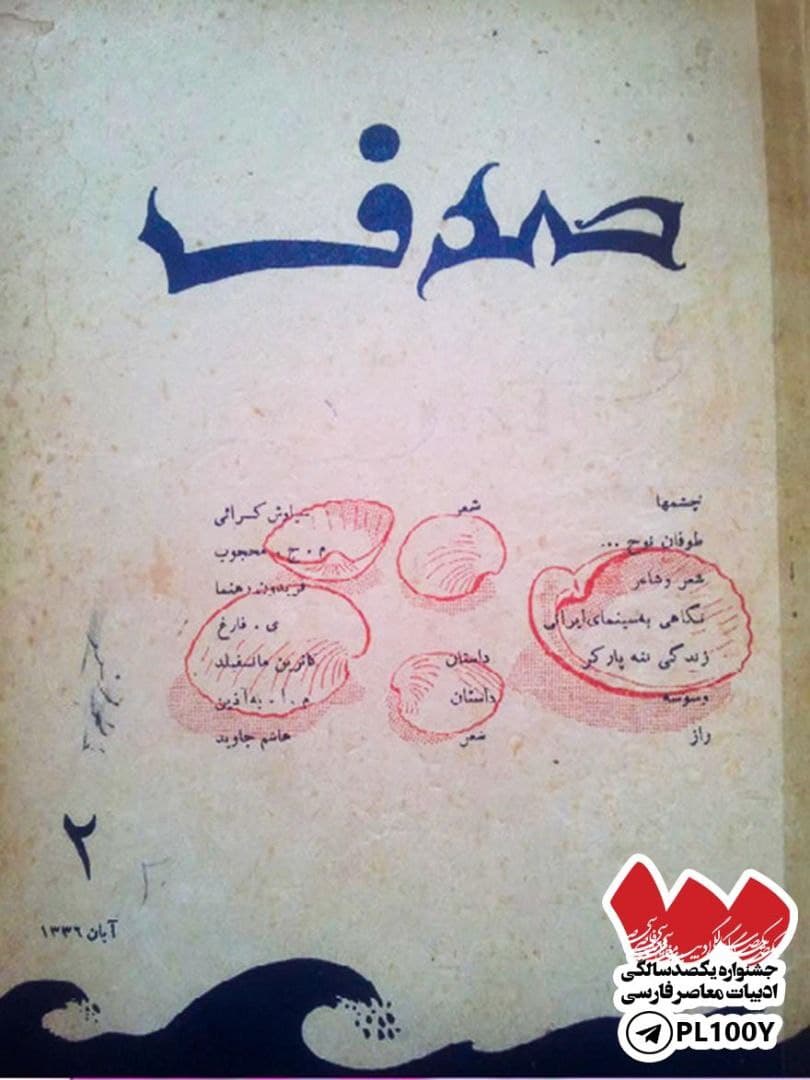 صدف
چشمها شعر سیاوش کسرائی
طوفان نوح ... م . ج . محجوب
شعر و شاعر فریدون رهنما
نگاهی به سینمای ایرانی ی . فارغ
زندگی ننه پارکر داستان کاترین مانسفیلد
وسوسه داستان م . ا . به‌آذین
راز شعر هاشم جاوید
۲
آبان ۱۳۳۶
جشنواره یکصدسالگی
ادبیات معاصر فارسی
PL100Y